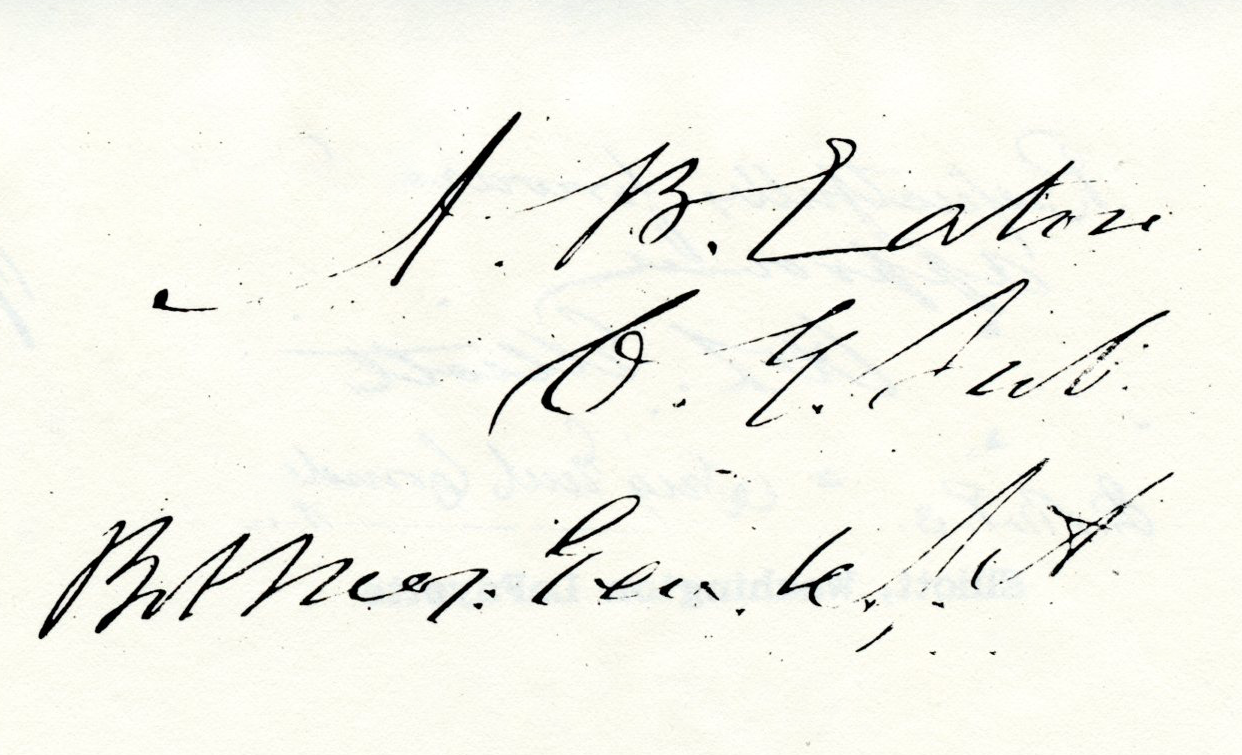 A. B. Eaton
C. G. Sub.
Bvt Maj. Genl.